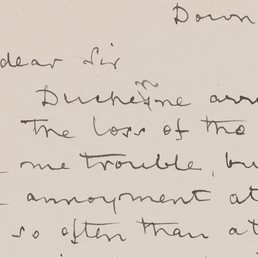 Down
dear Sir
Duchesne arr
the loss of the
me trouble, bu
annoyment at
so often than at